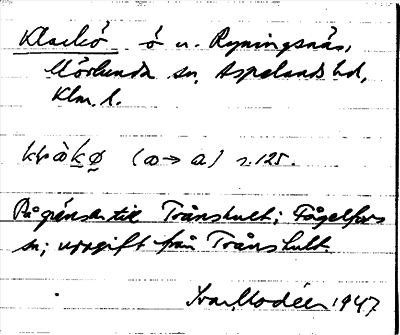 Klackö ö u. Ryningsnäs,
Mörlunda sn, Aspelands hd,
Klm. l.
(ω→a) s. 125.
På gränsen till Trånshult; Fågelfors
sn; uppgift från Trånshult.
Ivar Modéer 1947